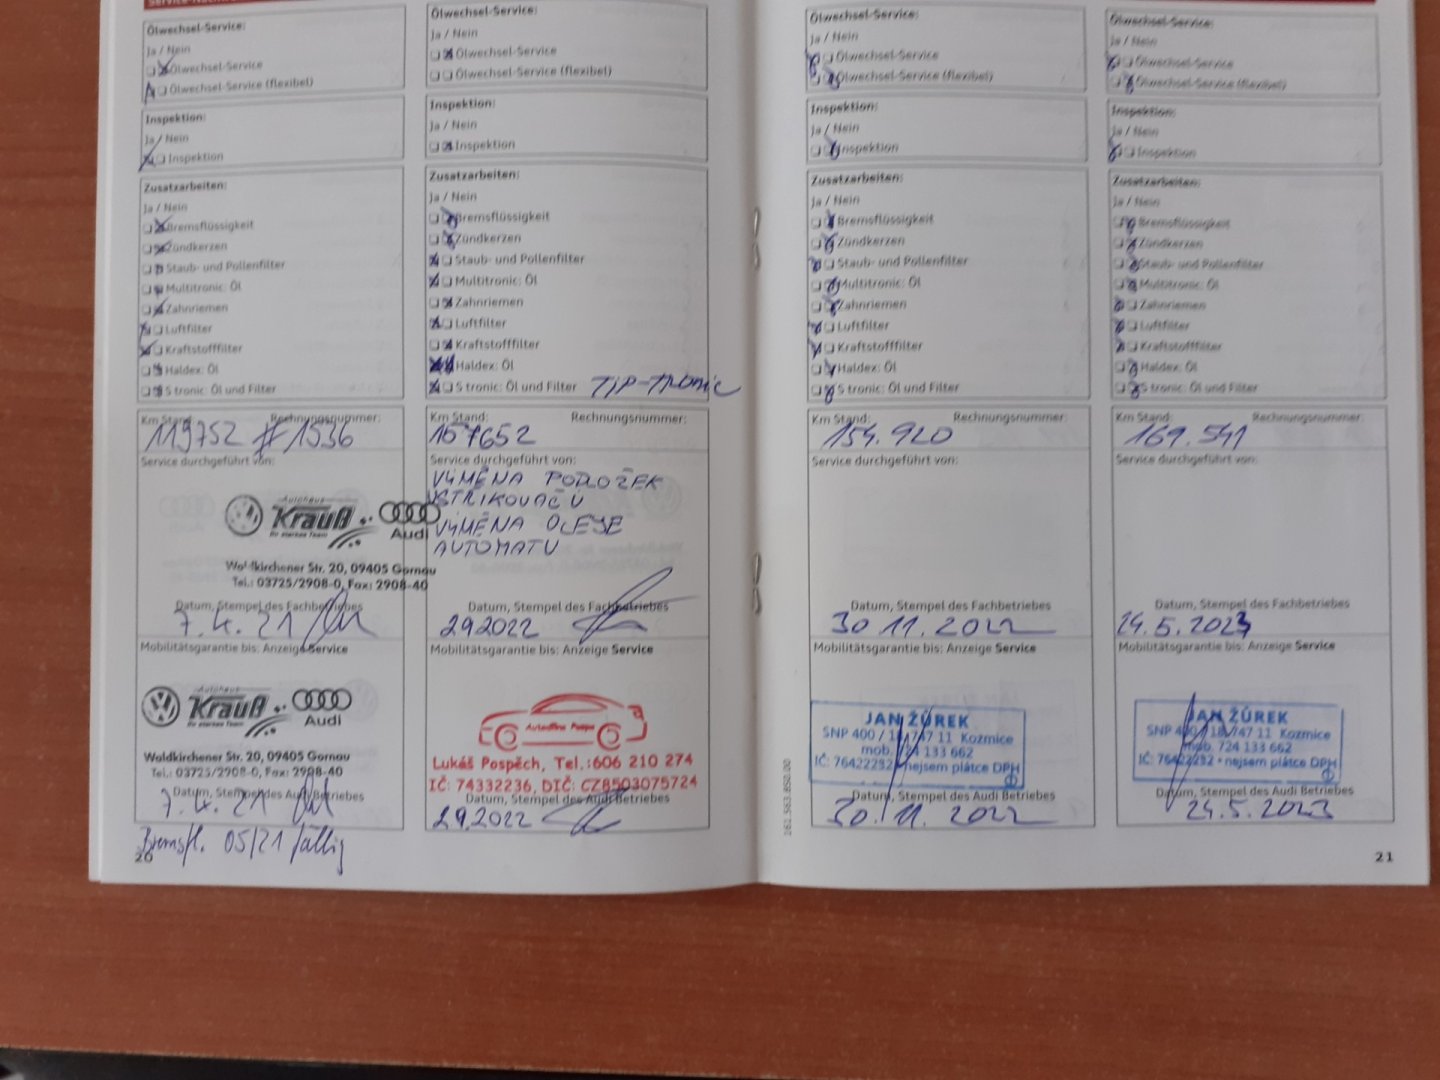 Ölwechsel-Service:
Ja / Nein
Ölwechsel-Service
Ölwechsel-Service (flexibel)
Inspektion:
Ja / Nein
Inspektion
Zusatzarbeiten:
Ja / Nein
Bremsflüssigkeit
Zündkerzen
Staub- und Pollenfilter
Multitronic: Öl
Zahnriemen
Luftfilter
Kraftstofffilter
Haldex: Öl
S tronic: Öl und Filter
Km Stand: Rechnungsnummer:
119752 #1536
Service durchgeführt von:
Autohaus
Krauß
Ihr starkes Team
Audi
Waldkirchener Str. 20, 09405 Gornau
Tel.: 03725/2908-0, Fax: 2908-40
Datum, Stempel des Fachbetriebes
7.4.21
Mobilitätsgarantie bis: Anzeige Service
Autohaus
Krauß
Ihr starkes Team
Audi
Waldkirchener Str. 20, 09405 Gornau
Tel.: 03725/2908-0, Fax: 2908-40
Datum, Stempel des Audi Betriebes
7.4.21
Bremsfl. 05/21 fällig
20
Ölwechsel-Service:
Ja / Nein
Ölwechsel-Service
Ölwechsel-Service (flexibel)
Inspektion:
Ja / Nein
Inspektion
Zusatzarbeiten:
Ja / Nein
Bremsflüssigkeit
Zündkerzen
Staub- und Pollenfilter
Multitronic: Öl
Zahnriemen
Luftfilter
Kraftstofffilter
Haldex: Öl
S tronic: Öl und Filter TIP-TRONIC
Km Stand: Rechnungsnummer:
Service durchgeführt von:
VÝMĚNA PODLOŽEK
VSTŘIKOVAČŮ
VÝMĚNA OLEJE
AUTOMATU
Datum, Stempel des Fachbetriebes
2.9.2022
Mobilitätsgarantie bis: Anzeige Service
Lukáš Pospěch, Tel.:606 210 274
IČ: 74332236, DIČ: CZ8503075724
Datum, Stempel des Audi Betriebes
2.9.2022
Ölwechsel-Service:
Ja / Nein
Ölwechsel-Service
Ölwechsel-Service (flexibel)
Inspektion:
Ja / Nein
Inspektion
Zusatzarbeiten:
Ja / Nein
Bremsflüssigkeit
Zündkerzen
Staub- und Pollenfilter
Multitronic: Öl
Zahnriemen
Luftfilter
Kraftstofffilter
Haldex: Öl
S tronic: Öl und Filter
Km Stand: Rechnungsnummer:
154.920
Service durchgeführt von:
Datum, Stempel des Fachbetriebes
30.11.2022
Mobilitätsgarantie bis: Anzeige Service
JAN ŽŮREK
SNP 400 / 18, 747 11 Kozmice
mob. 724 133 662
IČ: 76422232 • nejsem plátce DPH
Datum, Stempel des Audi Betriebes
30.11.2022
161.563.850.00
Ölwechsel-Service:
Ja / Nein
Ölwechsel-Service
Ölwechsel-Service (flexibel)
Inspektion:
Ja / Nein
Inspektion
Zusatzarbeiten:
Ja / Nein
Bremsflüssigkeit
Zündkerzen
Staub- und Pollenfilter
Multitronic: Öl
Zahnriemen
Luftfilter
Kraftstofffilter
Haldex: Öl
S tronic: Öl und Filter
Km Stand: Rechnungsnummer:
169.541
Service durchgeführt von:
Datum, Stempel des Fachbetriebes
24.5.2023
Mobilitätsgarantie bis: Anzeige Service
JAN ŽŮREK
SNP 400 / 18, 747 11 Kozmice
mob. 724 133 662
IČ: 76422232 • nejsem plátce DPH
Datum, Stempel des Audi Betriebes
24.5.2023
21